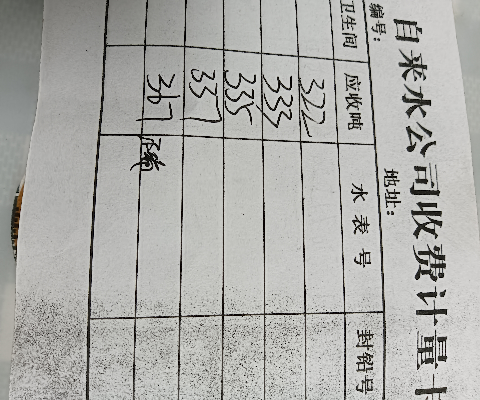 自来水公司收费计量卡
编号: 地址:
卫生间 应收吨 水表号 封铅号
322
333
335
337
367